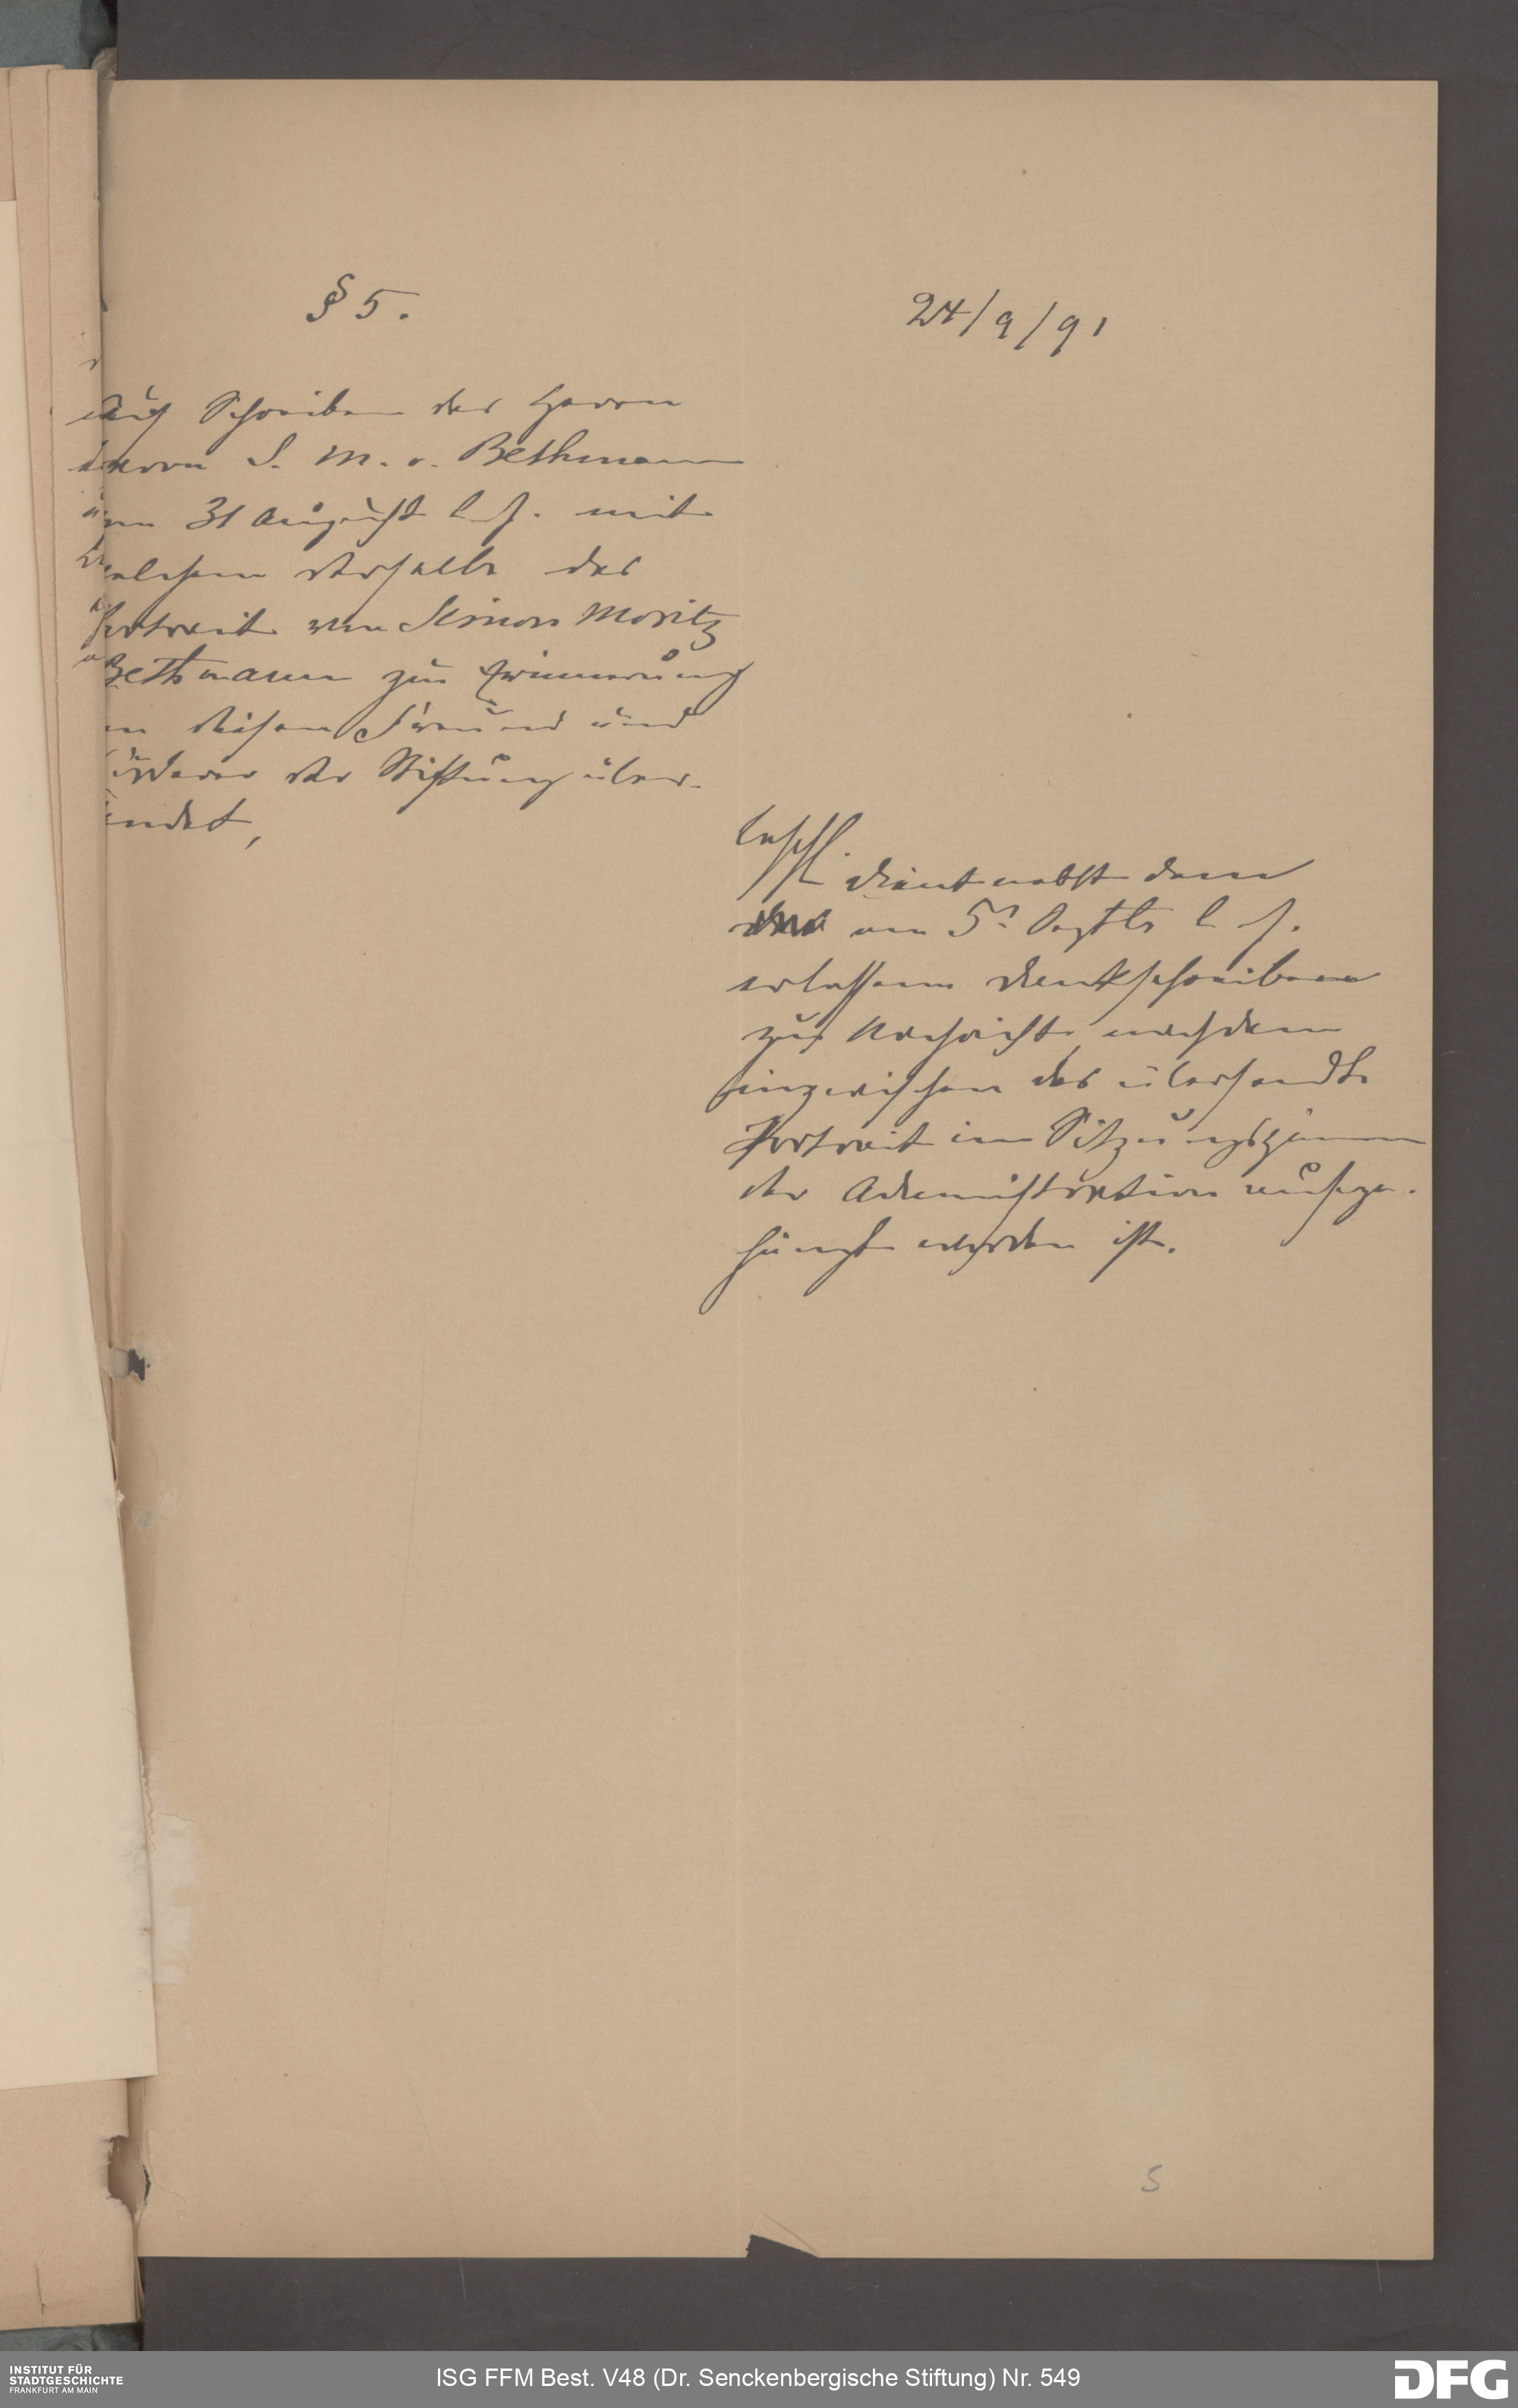 § 5.
24/9/91
Auf Schreiben des Herrn
S. M. v. Bethmann
31 August l. J. mit
welchem derselbe das
Portrait von Simon Moritz
Bethmann zur Erinnerung
an diesen Freund und
Förderer der Stiftung über-
sendet,
Beschl.
dient nebst dem
am 5t Septbr l. J.
erlassenen Dankschreiben
zur Nachricht, nachdem
inzwischen das übersandte
Portrait im Sitzungszimmer
der Administration aufge-
hängt worden ist.
5
INSTITUT FÜR
STADTGESCHICHTE
FRANKFURT AM MAIN
ISG FFM Best. V48 (Dr. Senckenbergische Stiftung) Nr. 549
DFG